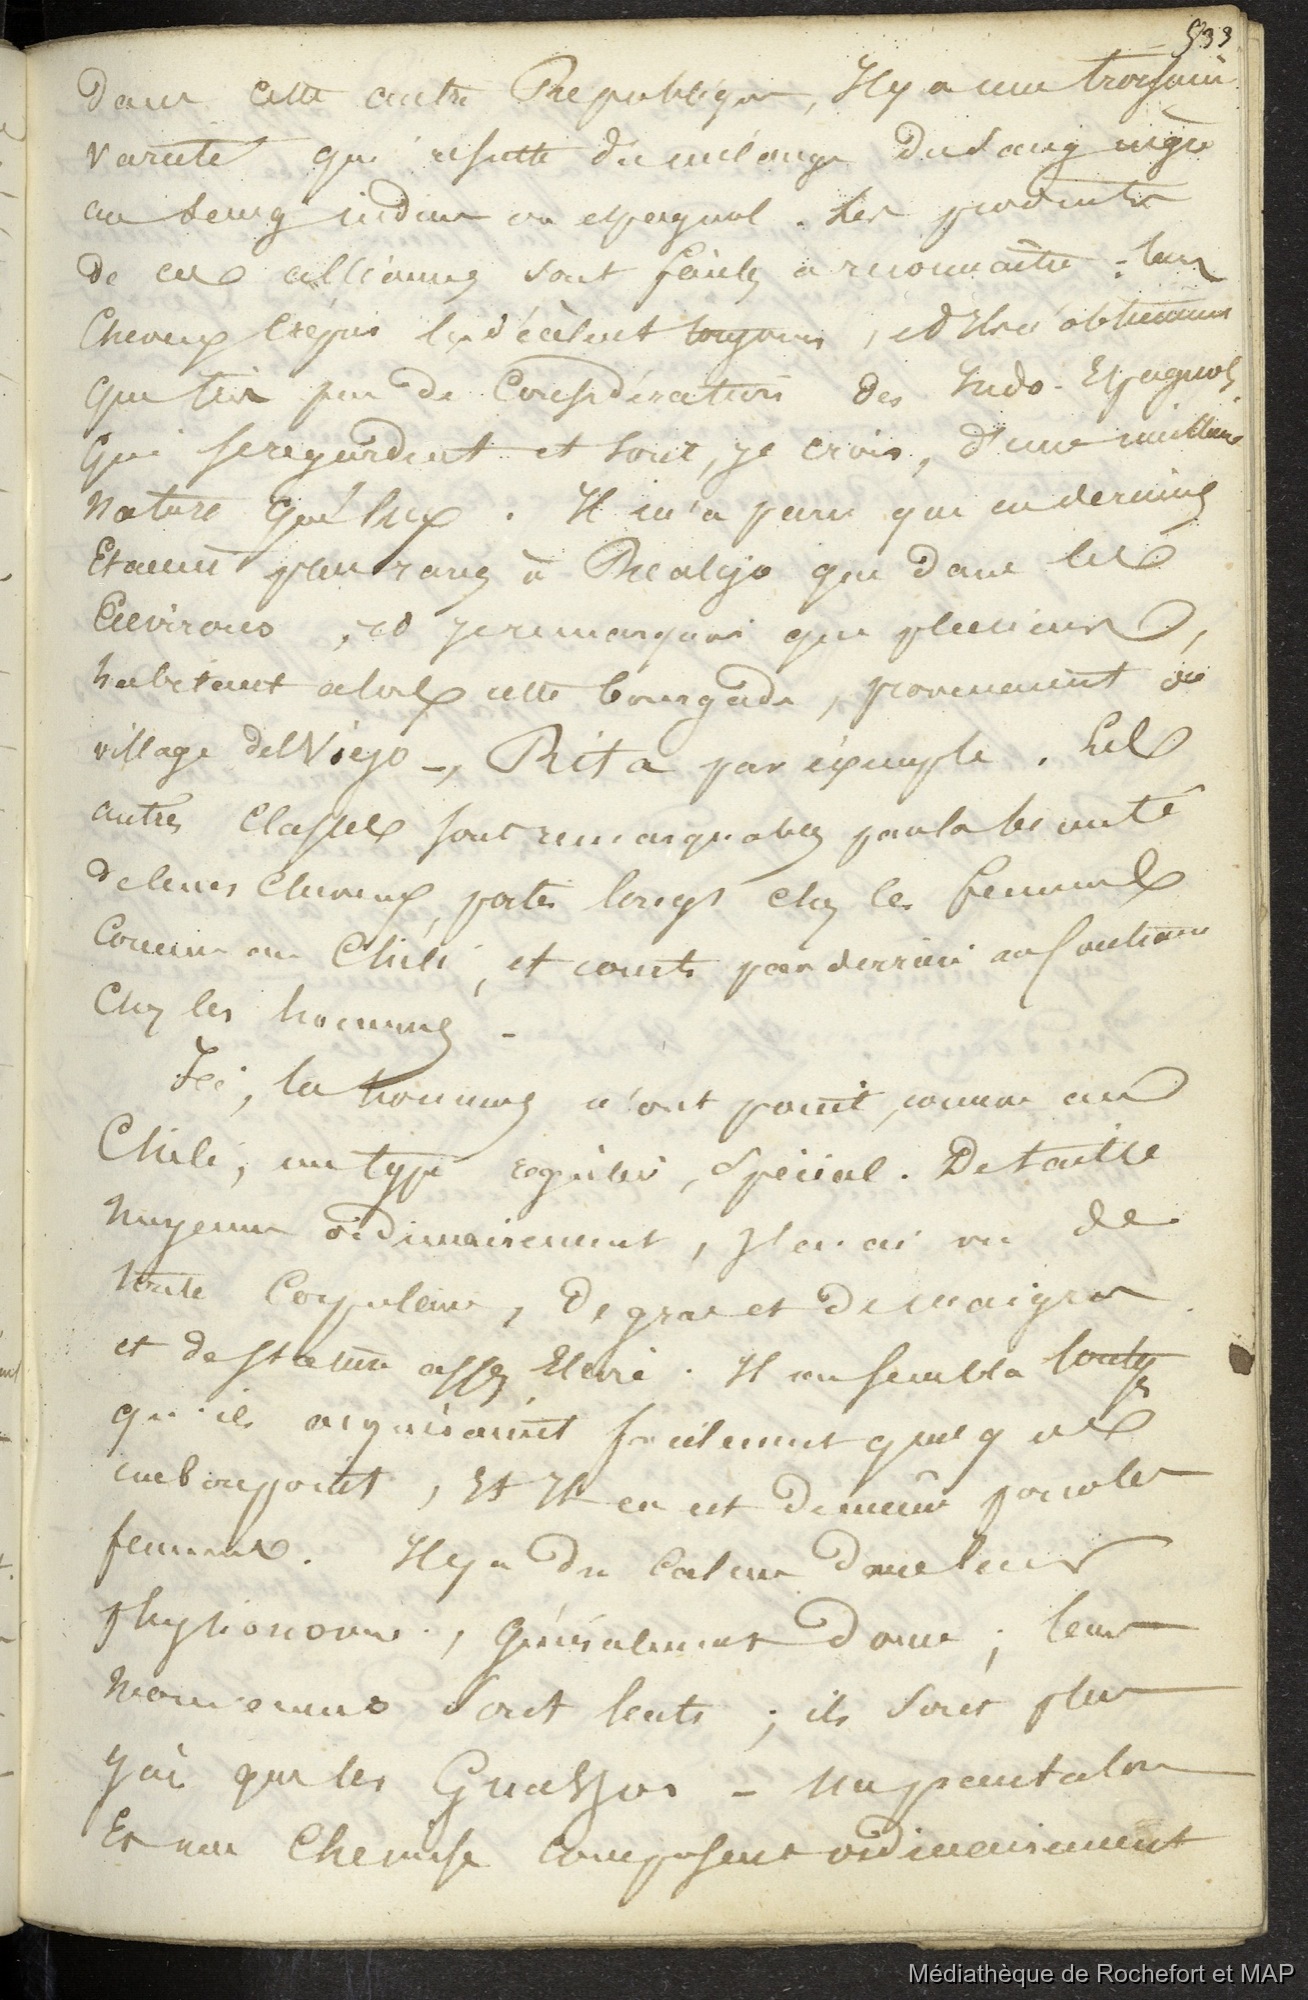 533
dans cette autre République, Il y a une troisième
variété qui résulte du mélange du sang nègre
au sang indien ou espagnol. Les produits
de ces alliances sont faciles a reconnaître : leurs
cheveux crépus les décèlent toujours, et Ils n'obtiennent
que très peu de Considération des Indo-Espagnols,
qui se regardent et sont, je crois, d'une meilleure
nature qu'Eux. Il m'a paru que ces derniers
Etaient plus rares à Realejo que dans les
Environs, et je remarquai que plusieurs,
habitant alors cette bourgade, provenaient du
village del Viejo -, Rita par éxemple. Les
autres Classes sont remarquables par la beauté
de leurs cheveux, portés longs chez les femmes
comme au Chili, et courts par derrière au contraire
Chez les hommes -
Ici, les hommes n'ont point, comme au
Chili, un type régulier, spécial. De taille
moyenne ordinairement, J'en ai vu de
toute Corpulence, de gras et de maigres
et de stature assez Elevée. Il me sembla
qu'ils acquéraient facilement quelque
embonpoint, Et Il en est de même pour les
femmes. Il y a du calme dans leur
physionomie, généralement douce ; leurs
mouvemens sont lents ; ils sont plus
gais que les Guassos - Un pantalon
Et une Chemise composent ordinairement
Médiathèque de Rochefort et MAP